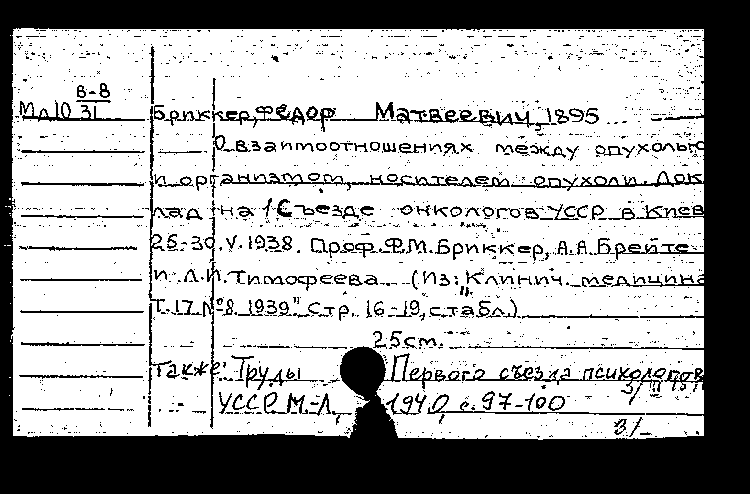 В-8
Мл10 31
Бриккер, Федор Матвеевич, 1895
О взаимоотношениях между опухолью
и организмом, носителем опухоли. Док
лад на 1 Съезде онкологов УССР в Киев
25-30.V.1938. Проф. Ф.М. Бриккер, А.А. Брейте
и Л.И. Тимофеева. (Из: "Клинич. медицина
Т. 17 №8 1939" Стр. 16-19, с табл.)
25 см.
Также: Труды Первого съезда психологов
УССР М.-Л. 1940, с. 97-100
3/-